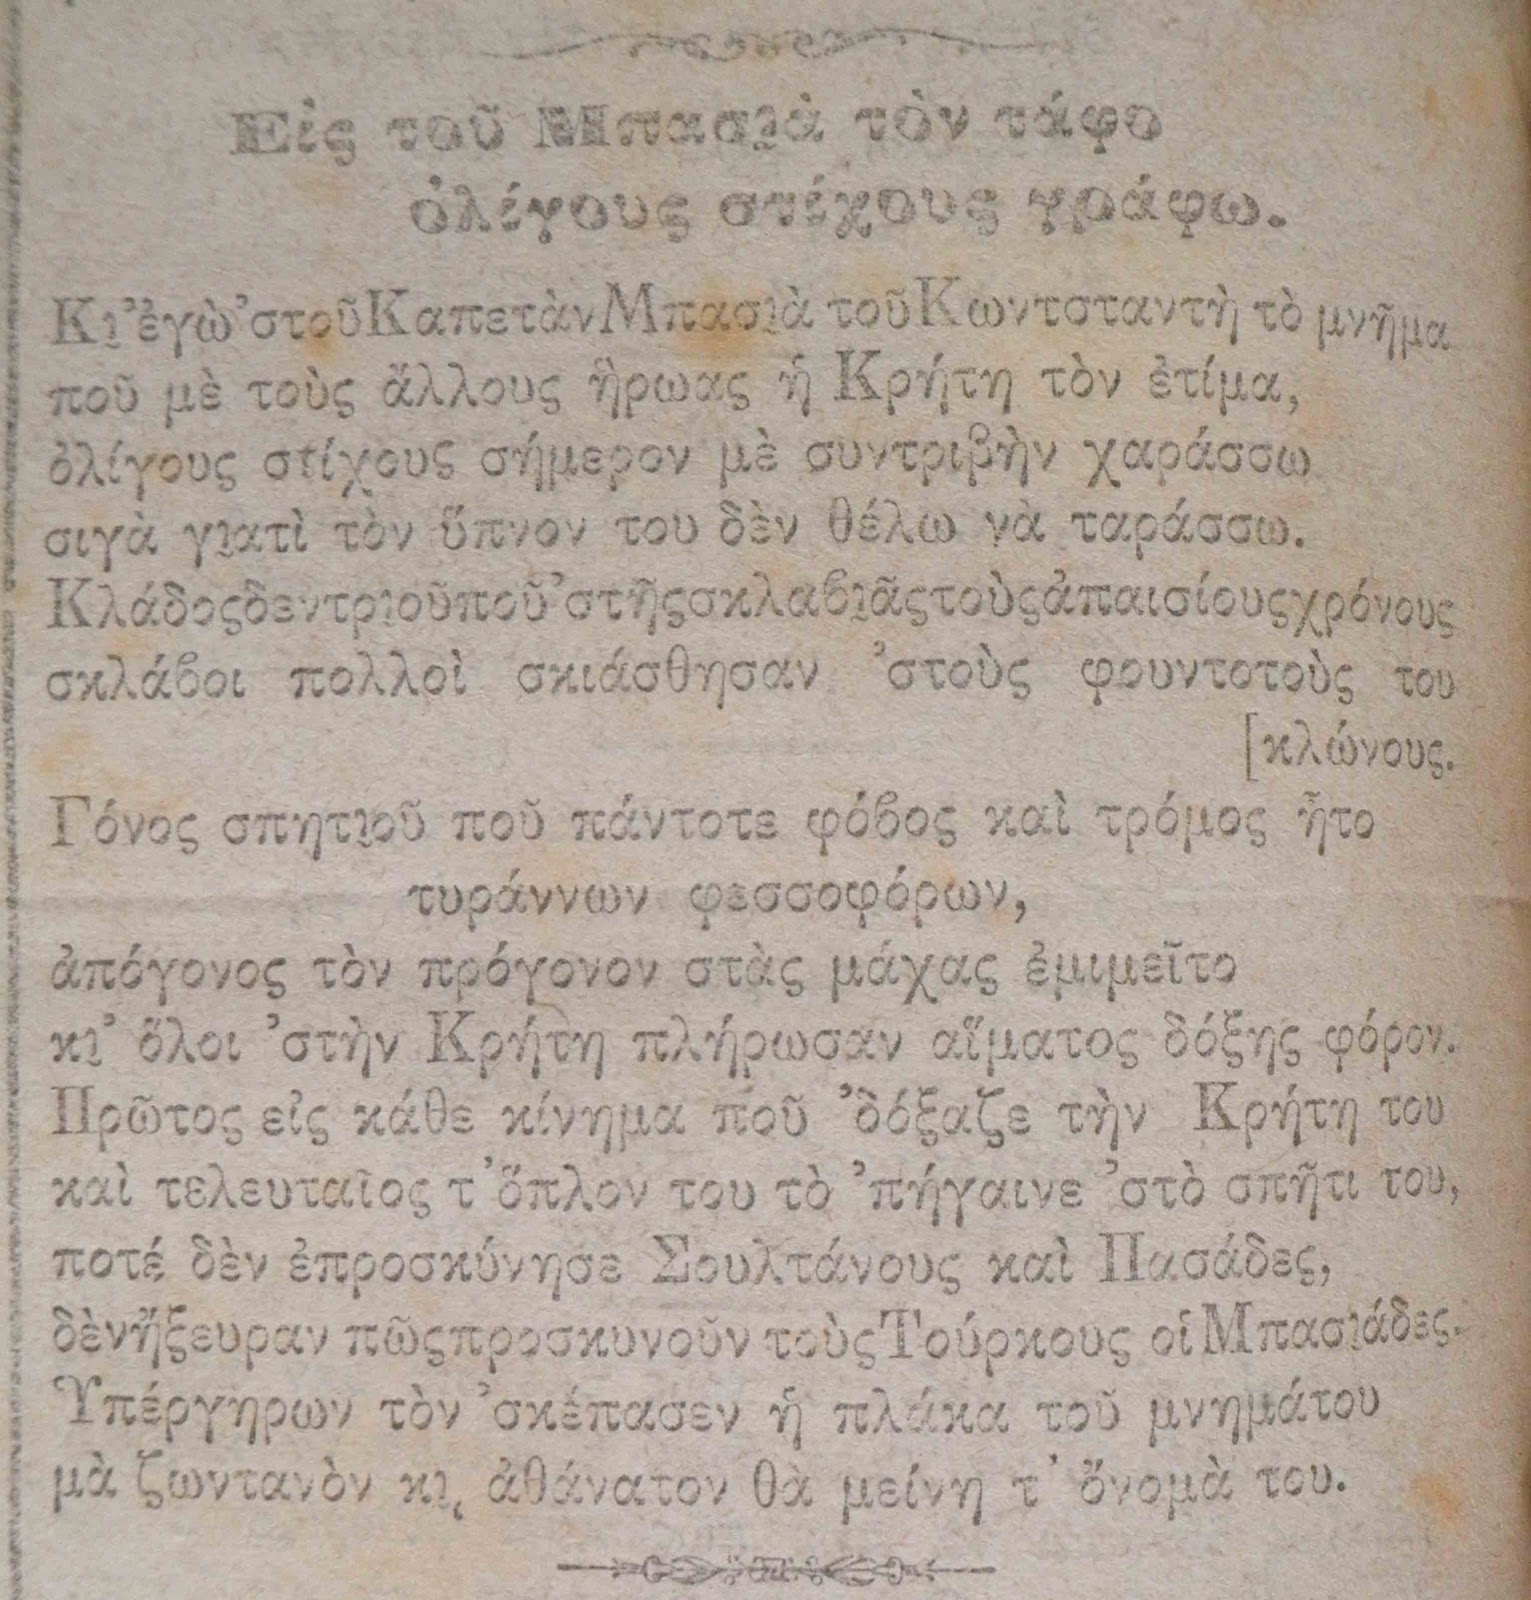 Εἰς τοῦ Μπασιὰ τὸν τάφο
ὀλίγους στίχους γράφω.
Κι' ἐγὼ 'στοῦ Καπετὰν Μπασιὰ τοῦ Κωντσταντὴ τὸ μνῆμα
ποῦ μὲ τοὺς ἄλλους ἥρωας ἡ Κρήτη τὸν ἐτίμα,
ὀλίγους στίχους σήμερον μὲ συντριβὴν χαράσσω
σιγὰ γιατὶ τὸν ὕπνον του δὲν θέλω νὰ ταράσσω.
Κλάδος δεντριοῦ ποῦ 'στῆς σκλαβιᾶς τοὺς ἀπαισίους χρόνους
σκλάβοι πολλοὶ σκιάσθησαν 'στοὺς φουντοτοὺς του
[κλώνους.
Γόνος σπητιοῦ ποῦ πάντοτε φόβος καὶ τρόμος ἦτο
τυράννων φεσσοφόρων,
ἀπόγονος τὸν πρόγονον στὰς μάχας ἐμιμεῖτο
κι' ὅλοι 'στὴν Κρήτη πλήρωσαν αἵματος δόξης φόρον.
Πρῶτος εἰς κάθε κίνημα ποῦ 'δόξαζε τὴν Κρήτη του
καὶ τελευταῖος τ' ὅπλον του τὸ 'πήγαινε 'στὸ σπῆτι του,
ποτέ δὲν ἐπροσκύνησε Σουλτάνους καὶ Πασάδες,
δὲν ἤξευραν πῶς προσκυνοῦν τοὺς Τούρκους οἱ Μπασιάδες.
Ὑπέργηρων τὸν 'σκέπασεν ἡ πλάκα τοῦ μνημάτου
μὰ ζωντανὸν κι, ἀθάνατον θὰ μείνη τ' ὄνομὰ του.